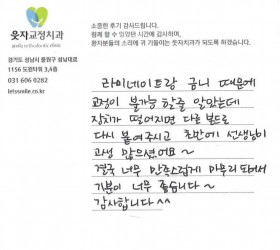 소중한 후기 감사드립니다.
함께 할 수 있었던 시간에 감사하며,
환자분들의 소리에 귀 기울이는 웃자치과가 되도록 하겠습니다.
웃자교정치과
경기도 성남시 중원구 성남대로
1156 도원타워 3,4층
031 606 0282
letssmile.co.kr
라미네이트랑 금니 때문에
교정이 불가능 할줄 알았는데
장치가 떨어지면 다른 본드로
다시 붙여주시고 초반에 선생님이
고생 많으셨어요~
결국 너무 만족스럽게 마무리 되어서
기분이 너무 좋습니다~
감사합니다^^